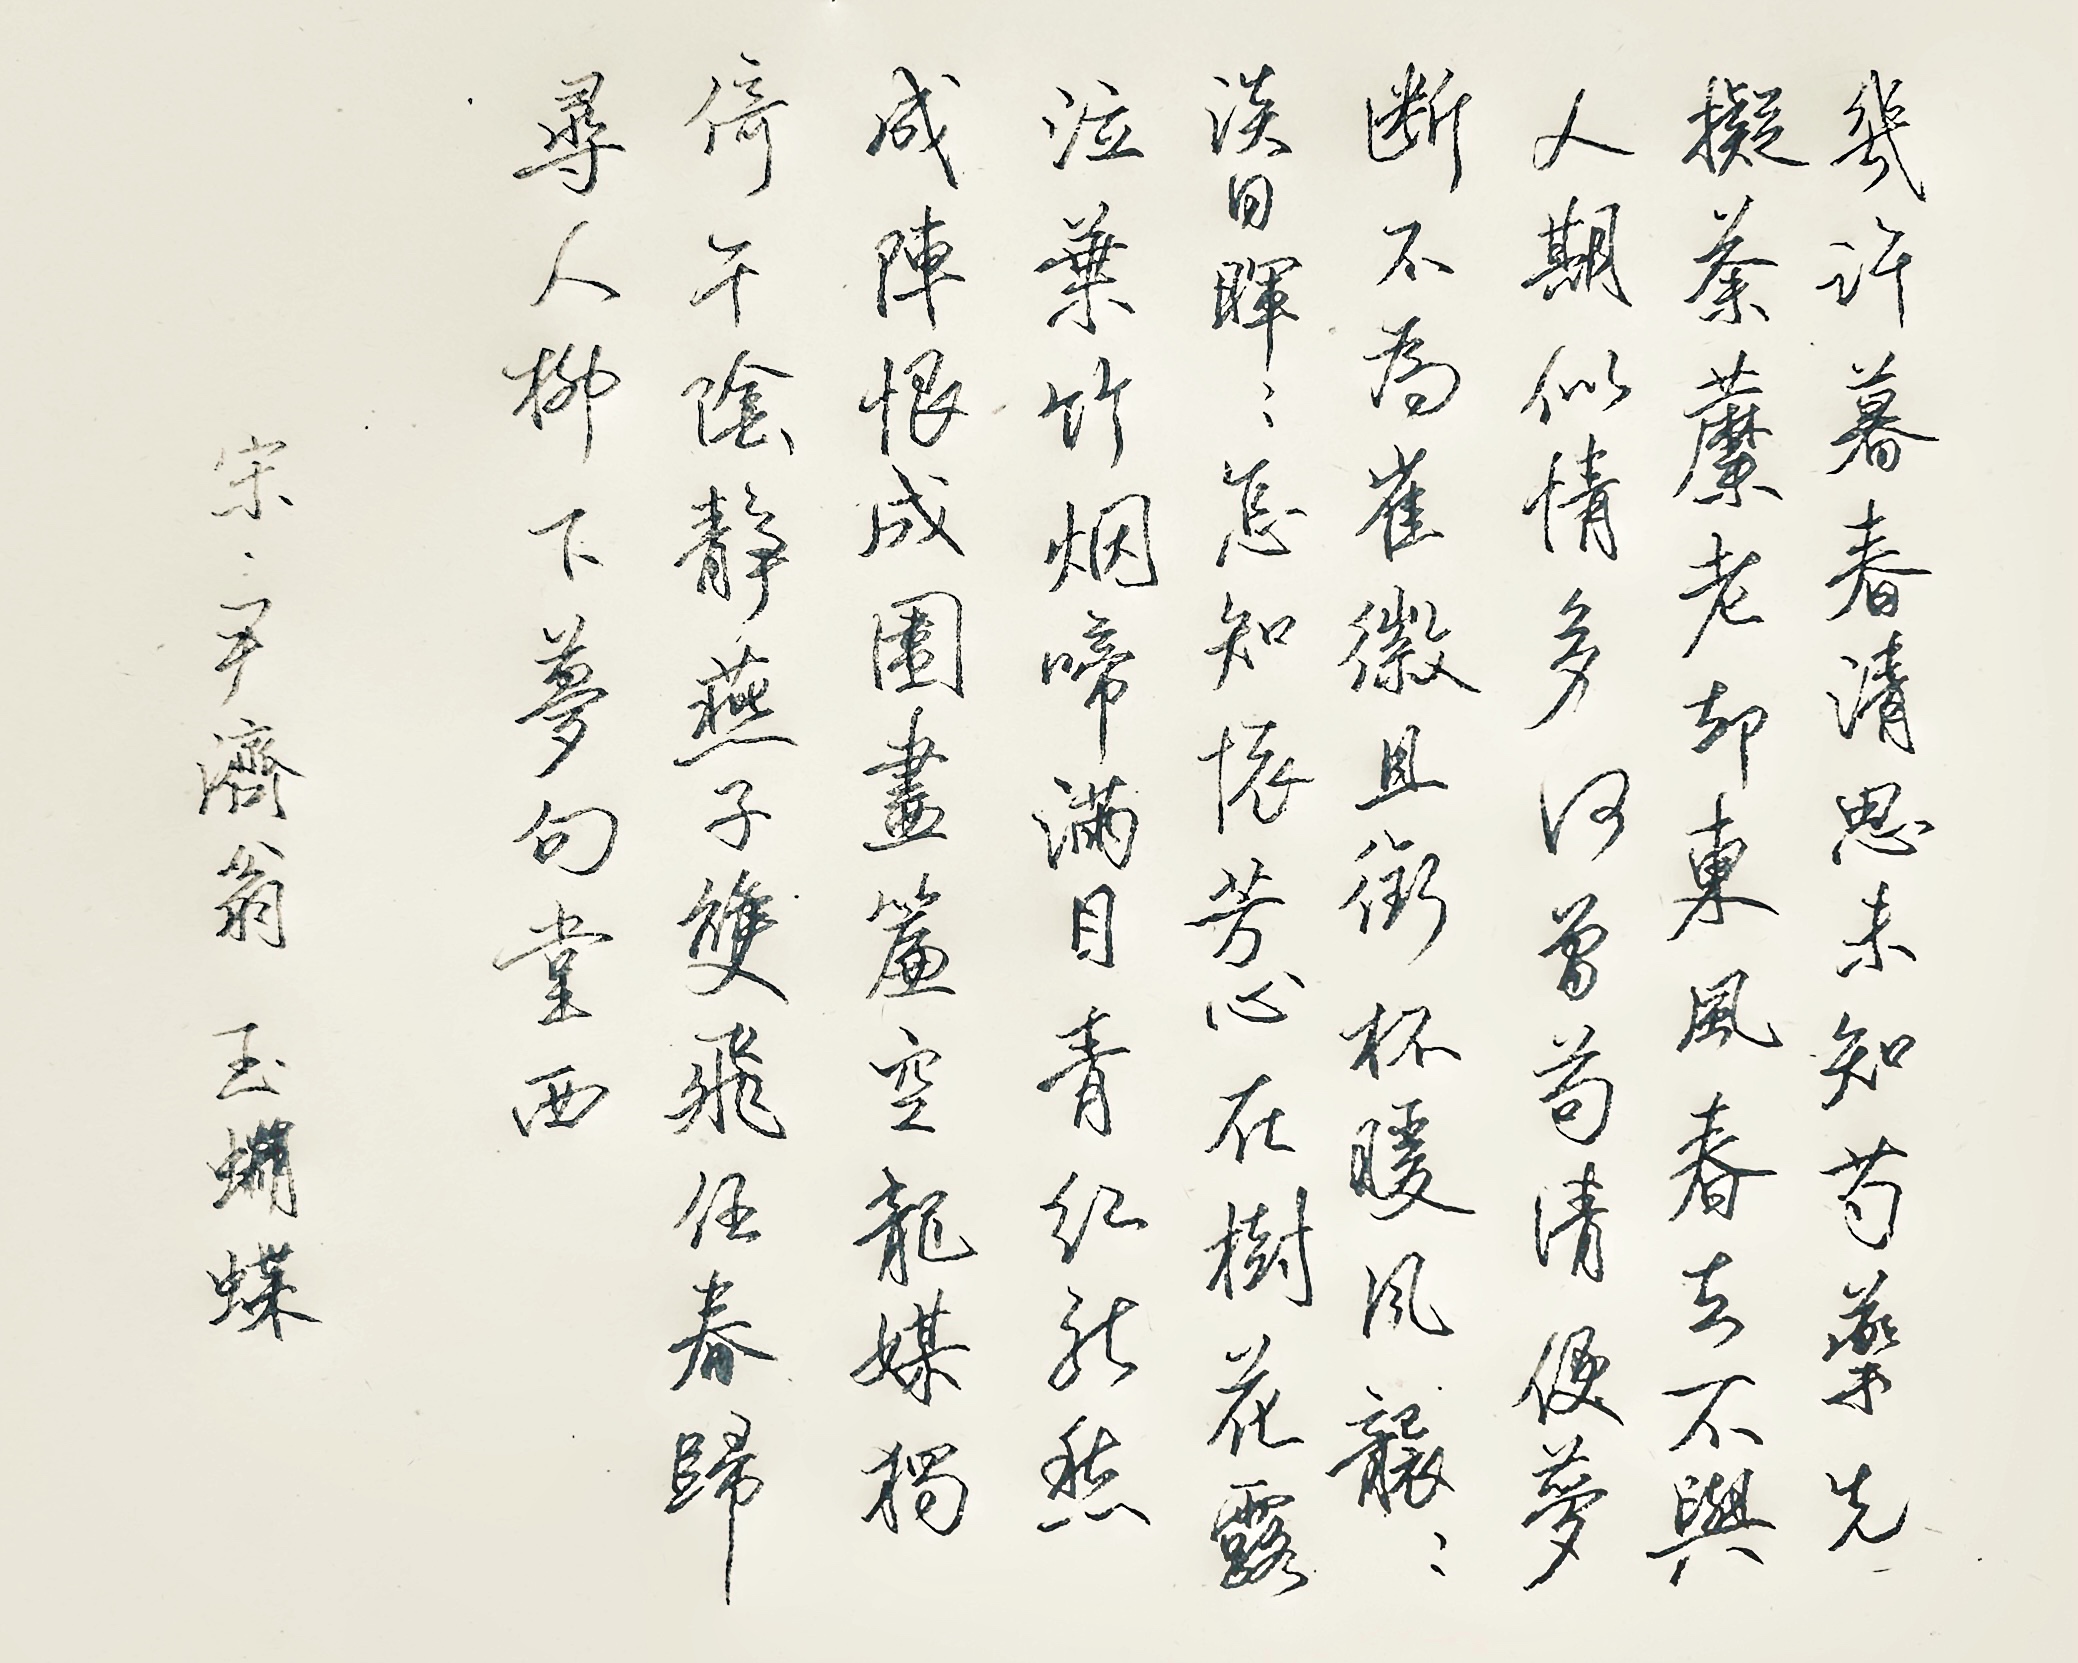 幾許暮春清思未知芍藥先
擬荼蘼老却東風春去不與
人期似情多何曾荀清便夢
断不為崔徽且銜杯暖风襲〻
淡日暉〻怎知懷芳心在樹花露
泣葉竹烟啼滿目青红能愁
成陣恨成圍畫簾空龍媒獨
倚午陰靜燕子雙飛任春歸
尋人柳下夢句堂西
宋:尹濟翁 玉蝴蝶